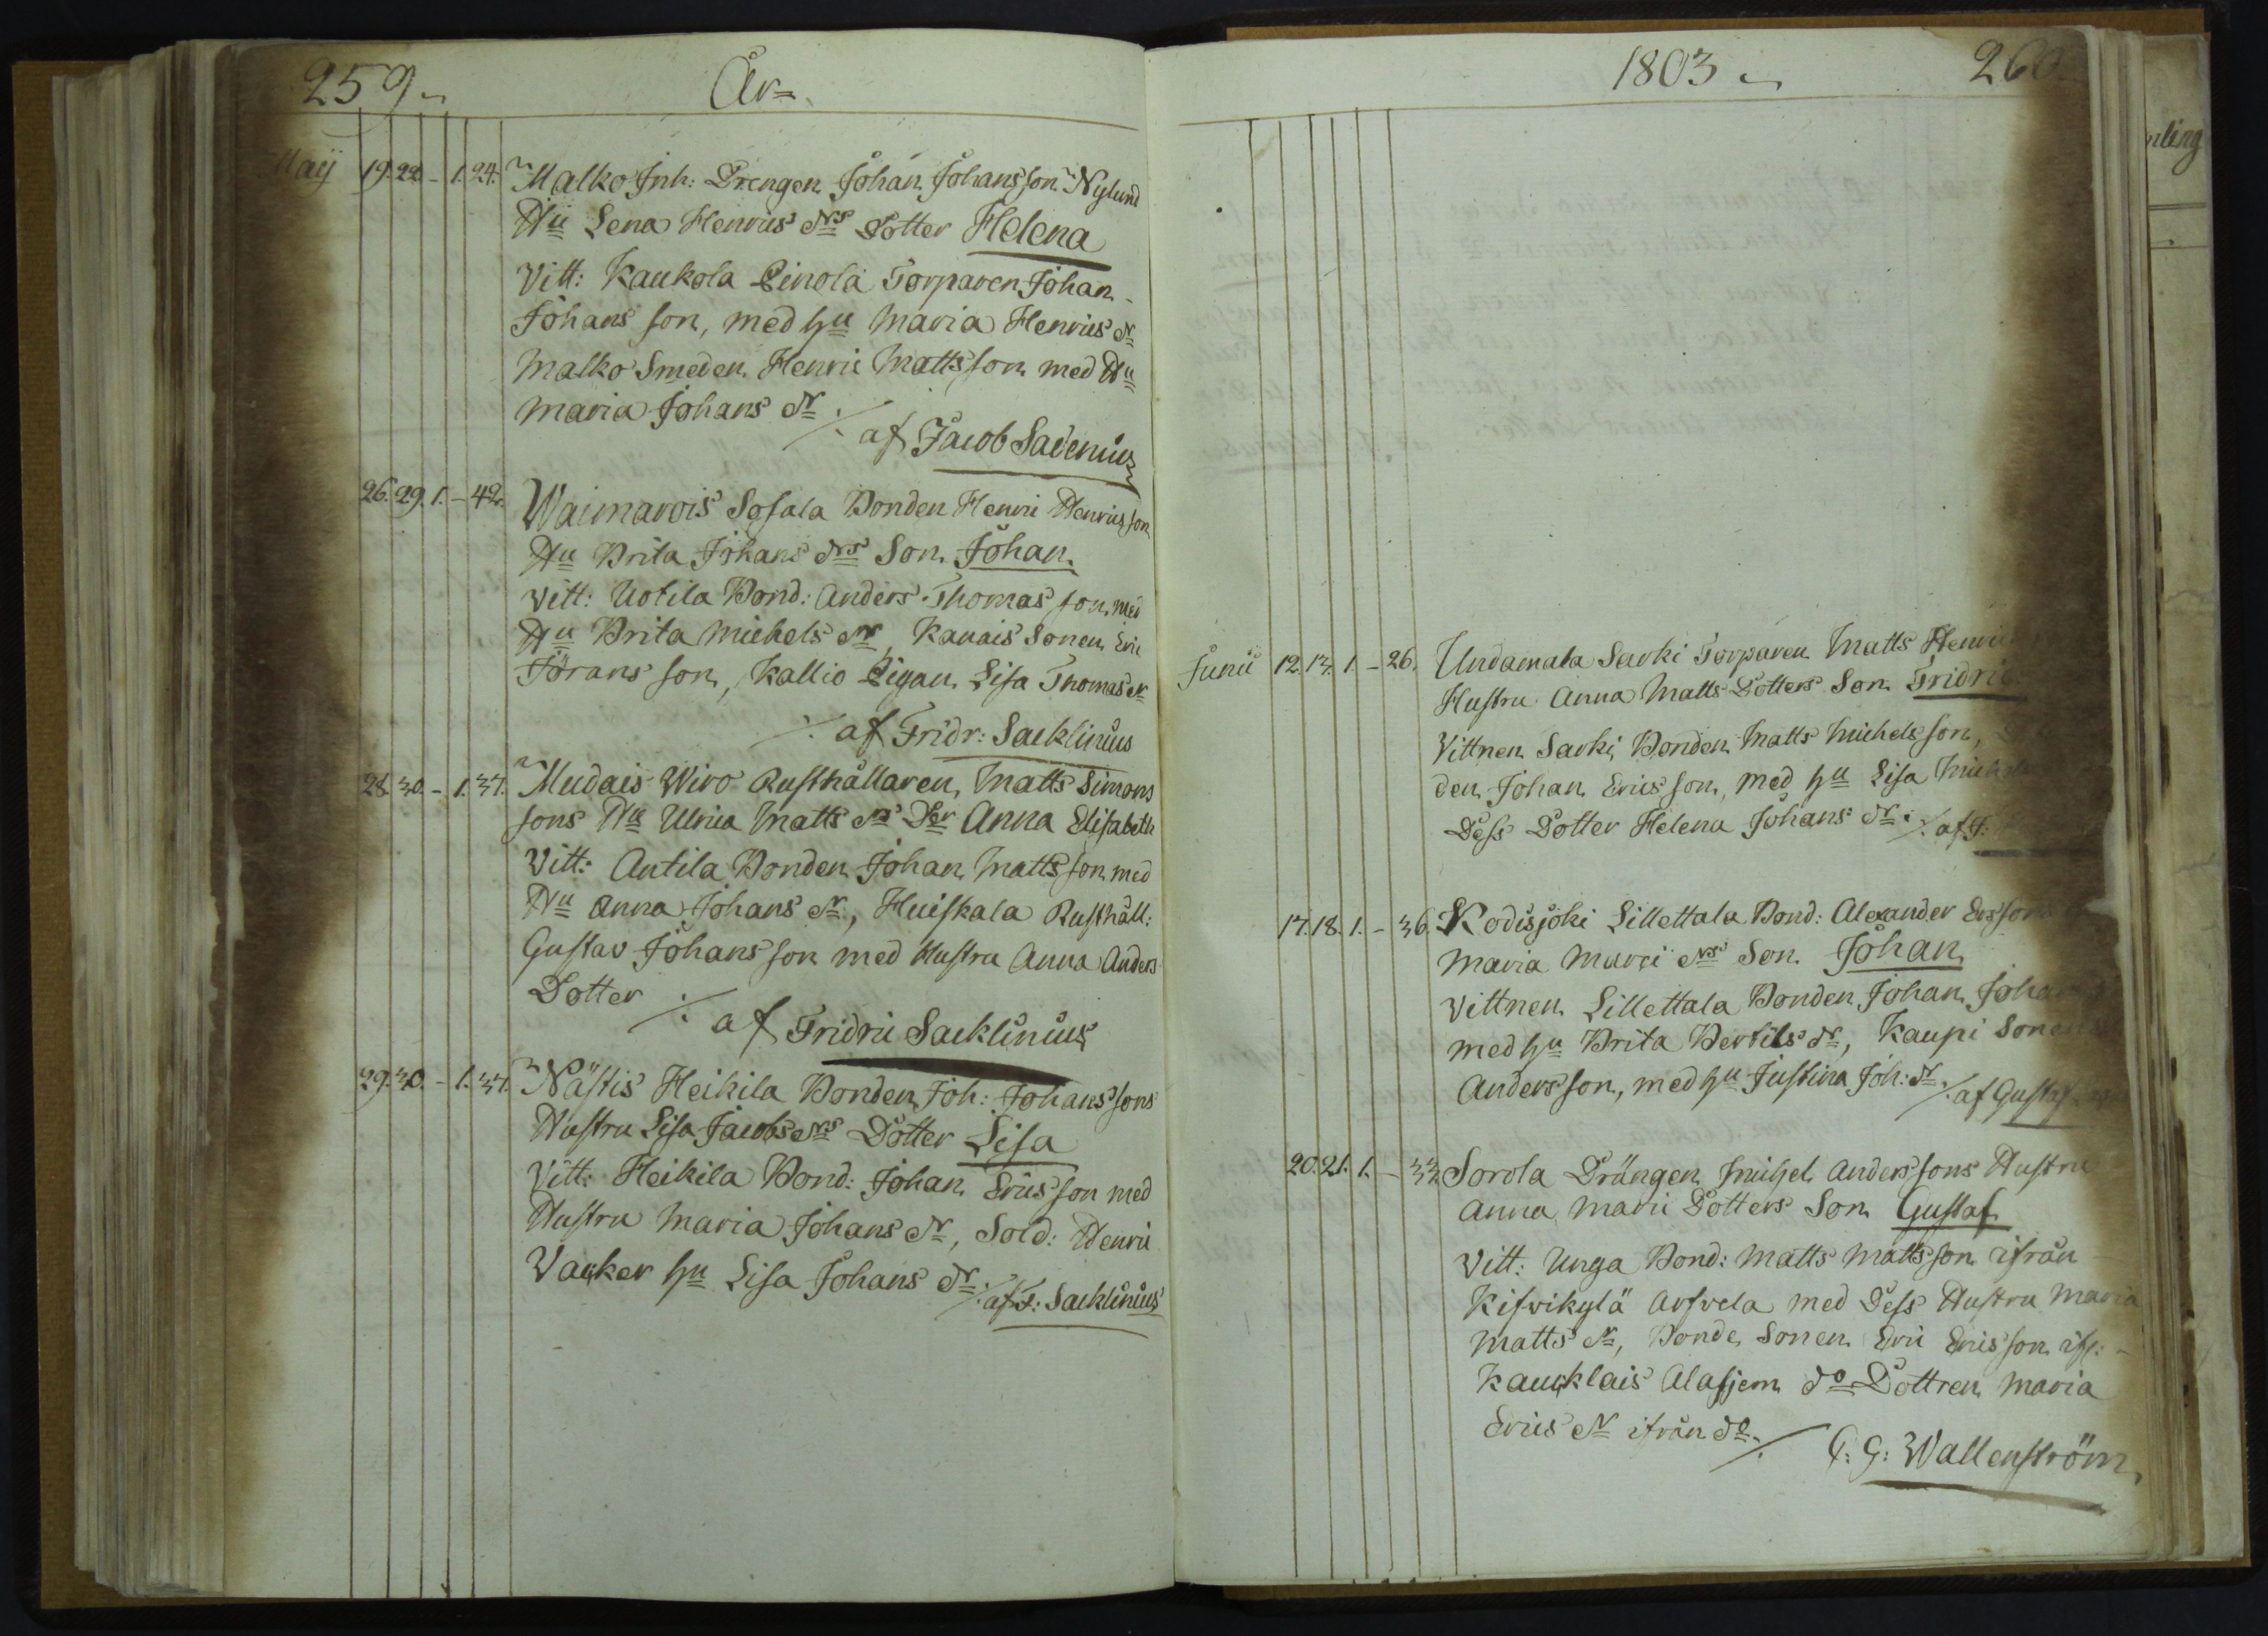 259
År
Maÿ 19. 22. - 1. 24. Malko Inh: Drengen Johan Johansson Nylund
Hu Lena Henrics Drs Dotter Helena
Vitt: Kaukola Einola Torparen Johan
Johans son, med hu Maria Henrics Dr
Malko Smeden Henric Mattsson med Hu
Maria Johans Dr ./. af Jacob Sadenius
26. 29. 1. - 42. Waimarois Sofala Bonden Henric Henricsson
Hu Brita Johans Drs Son Johan
Vitt: Uotila Bond: Anders Thomas son, med
Hu Brita Michels Dr, Kauais Sonen Eric
Jörans son, Kallio Pigan Lisa Thomas Dr
./. af Fridr: Sacklinius
28. 30. - 1. 37. Mudais Wiro Rusthållaren Matts Simons
sons Hu Ulrica Matts Drs Dr Anna Elisabeth
Vitt: Antila Bonden Johan Mattsson med
Hu Anna Johans Dr, Huiskala Rusthåll:
Gustav Johans son med Hustru Anna Anders
Dotter ./. af Fridric Sacklinius
29. 30. - 1. 37. Nästis Heikila Bonden Joh: Johanssons
Hustru Lisa Jacobs Drs Dotter Lisa
Vitt: Heikila Bond: Johan Ericsson med
Hustru Maria Johans Dr, Sold: Henric
Wacker hu Lisa Johans Dr ./. af F: Sacklinius
1803
260
Junii 12. 13. 1. - 26. Undamala Sarki Torparen Matts
Hustru Anna Matts Dotters Son
Vittnen Sarki Bonden Matts Michelsson,
den Johan Ericsson, med hu Lisa
Dess Dotter Helena Johans Dr ./. af F:
17. 18. 1. - 36. Kodisjoki Lillettala Bond: Alexander
Maria Marci Drs Son Johan
Vittnen Lillettala Bonden Johan
med hu Brita Bertils Dr, Kaupi
Andersson, med hu Justina Joh: Dr ./. af Gustaf
20. 21. 1. - 33. Sorola Drängen Michel Anderssons Hustru
Anna Marci Dotters Son Gustaf
Vitt: Unga Bond: Matts Mattsson ifrån
Kifvikylä Arfvela med Dess Hustru Maria
Matts Dr, Bonde Sonen Eric Ericsson ifr:
Kaucklais Alasjem do Dottren Maria
Erics Dr ifrån do ./. C: G: Wallenström